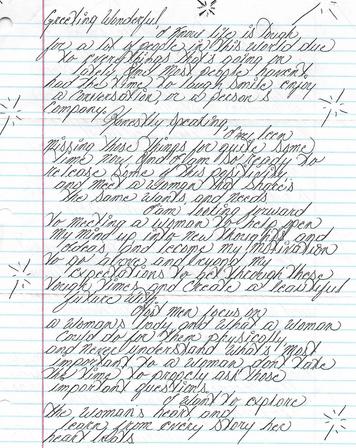 Greeting Wonderful,
I know life is tough
for a lot of people in this world due
to everythings that's going on
lately. And most people haven't
had the time to laugh, smile, enjoy
a conversation, or a person's
company.
Honestly speaking,
I've been
missing these things for quite some
time now, and I am so ready to
release some of this positivity
and meet a woman that share's
the same wants and needs
I am looking forward
to meeting a woman to help open
my mind up into new thoughts and
ideas, and become my inspiration
to go above and beyond my
expectations to get through these
rough times and create a beautiful
future
Most men focus on
a woman's body, and what a woman
could do for them physically
and never understand what's most
important to a woman don't take
the time to properly ask those
important questions.
I want to explore
the woman's heart, and
learn from every story her
heart beats